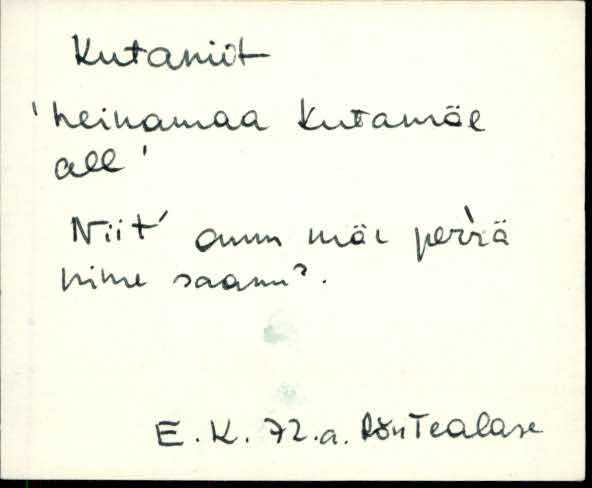 Kutaniit
'heinamaa Kutamäe
all'
Niit' omm mäe perrä
nime saanu?.
E. K. 72.a. Tealase